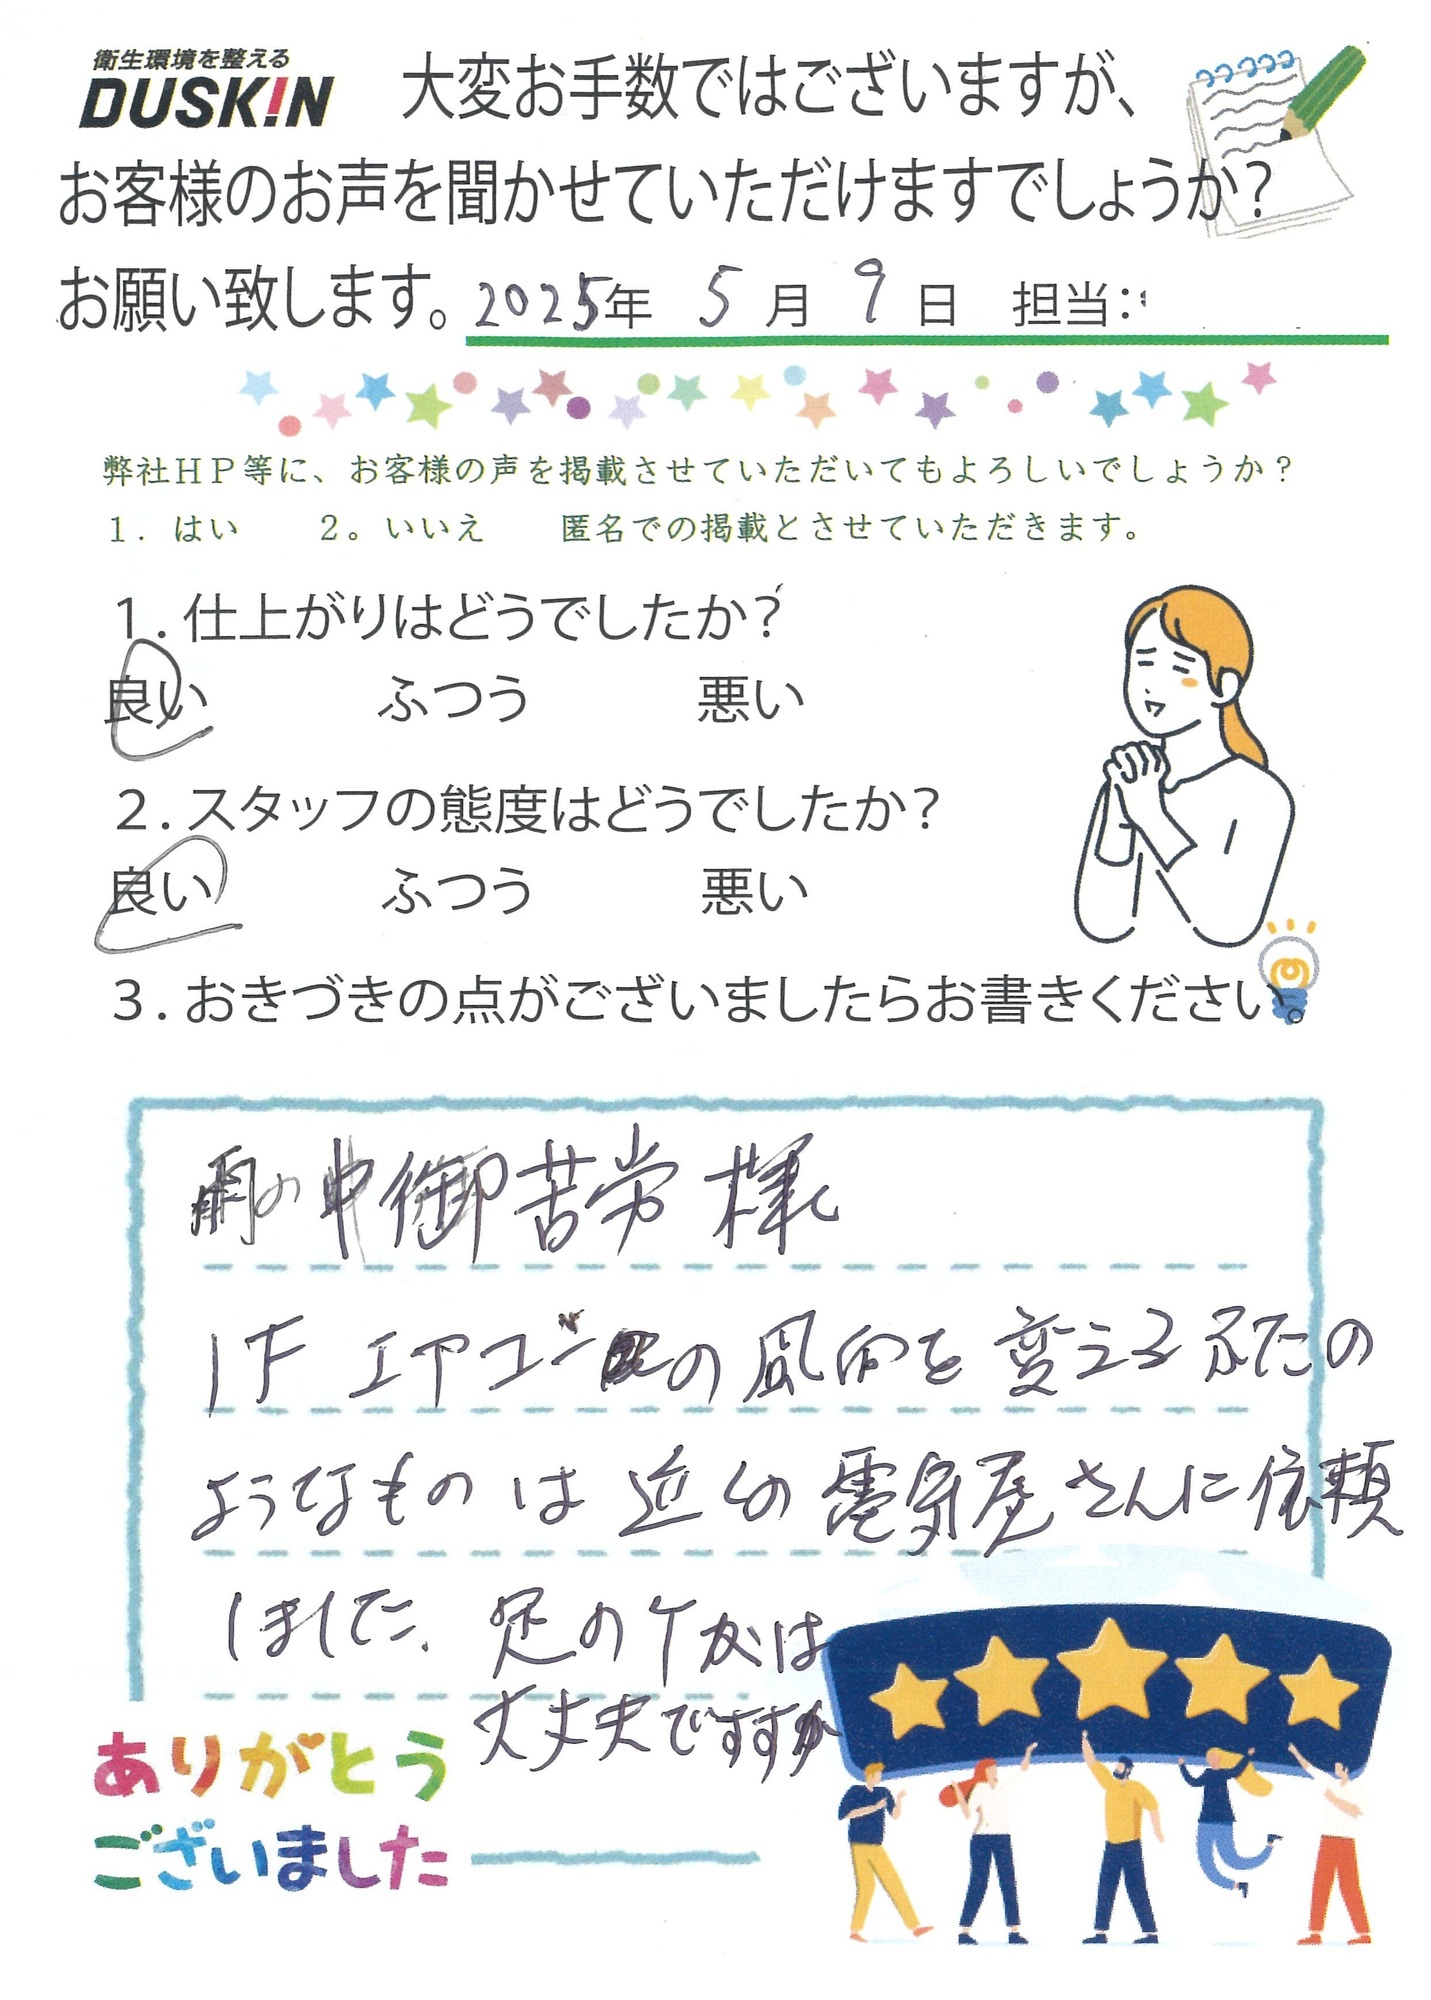 衛生環境を整える
DUSKIN
大変お手数ではございますが、
お客様のお声を聞かせていただけますでしょうか?
お願い致します。2025年 5月 9日 担当:
弊社HP等に、お客様の声を掲載させていただいてもよろしいでしょうか?
1. はい 2。いいえ 匿名での掲載とさせていただきます。
1.仕上がりはどうでしたか?
良い ふつう 悪い
2.スタッフの態度はどうでしたか?
良い ふつう 悪い
3.おきづきの点がございましたらお書きください。
雨の中御苦労様
1F エアコンの風向を変えるふたの
ようなものは近くの電気屋さんに依頼
しました。足のケガは
大丈夫ですか
ありがとう
ございました